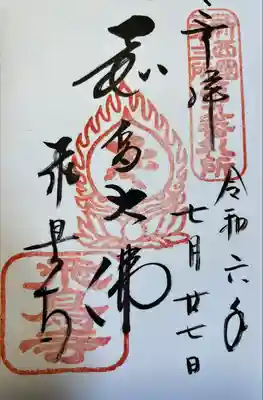 奉拝
令和六年
七月廿七日
飛鳥大佛
飛鳥寺
飛鳥寺